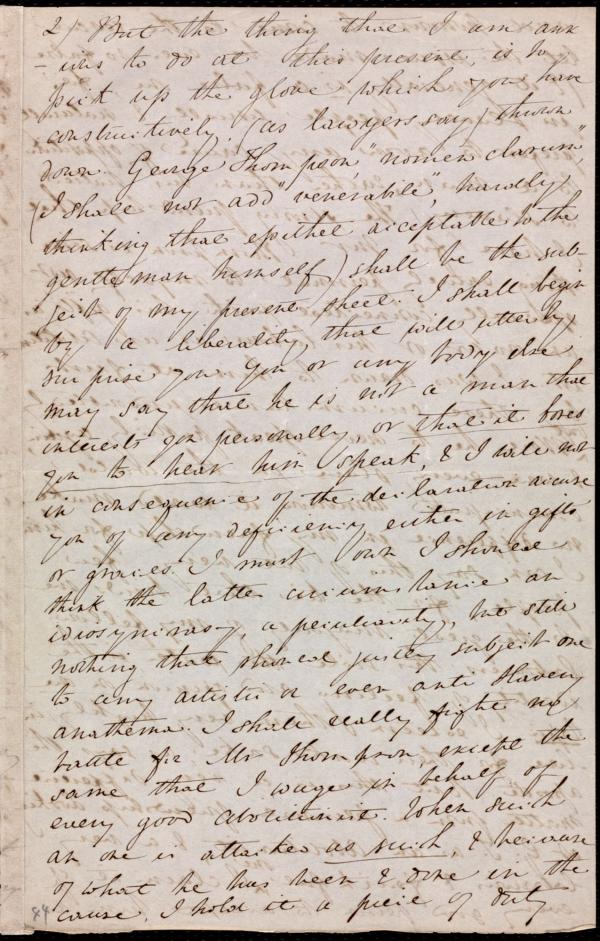 2) But the thing that I am anx
-ious to do at this present, is to
pick up the glove which you have
constructively, (as lawyers say) thrown
down. George Thompson, "nomen clarum",
(I shall not add "venerabile", hardly
thinking that epithet acceptable to the
gentleman himself) shall be the sub-
ject of my present sheet. I shall begin
by a liberality, that will utterly
surprise you. You or any body else
may say that he is not a man that
interests you personally, or that it bores
you to hear him speak, & I will not
in consequence of the declaration accuse
you of any deficiency either in gifts
or graces. I must own I should
think the latter circumstance an
idiosyncrasy, a peculiarity, but still
nothing that should justly subject one
to any artistic or even anti slavery
anathema. I shall really fight no
battle for Mr Thompson, except the
same that I wage in behalf of
every good abolitionist. When such
an one is attacked as such, & because
of what he has been & done in the
cause, I hold it a piece of duty